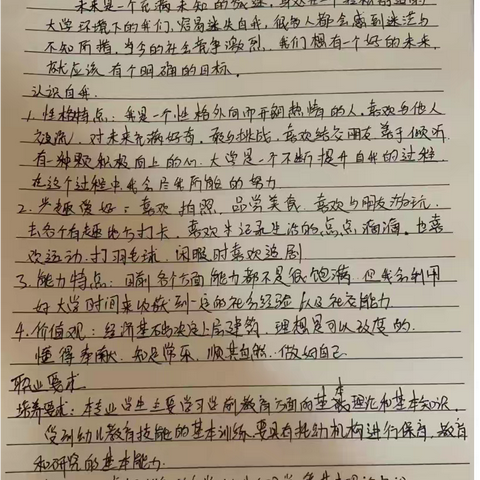 未来是一个充满未知的
大学环境下的我们,容易迷失自我,很多人都会感到迷茫与
不知所措,当今的社会竞争激烈,我们想有一个好的未来,
就应该有个明确的目标。
认识自我.
1.性格特点:我是一个性格外向而开朗热情的人,喜欢与他人
交流,对未来充满好奇,敢于挑战,喜欢结交朋友善于倾听
有一种颗积极向上的心.大学是一个不断提升自我的过程
在这个过程中我会尽我所能的努力
2.兴趣爱好:喜欢拍照,品尝美食,喜欢与朋友游玩.
去各个有趣地方打卡,喜欢生活记录生活的点点滴滴。也喜
欢运动,打羽毛球,闲暇时喜欢追剧
3.能力特点:目前各个方面能力都不是很饱满,但我会利用
好大学时间来收获到一定的社会经验以及社交能力
4.价值观:经济基础决定上层建筑,理想是可以改变的.
懂得奉献,知足常乐,顺其自然,做好自己
职业要求
培养要求:本专业学生主要学习学前教育方面的基本理论和基本知识,
受到幼儿教育技能的基本训练,要具有托幼机构进行保育,教育
和研究的基本能力.